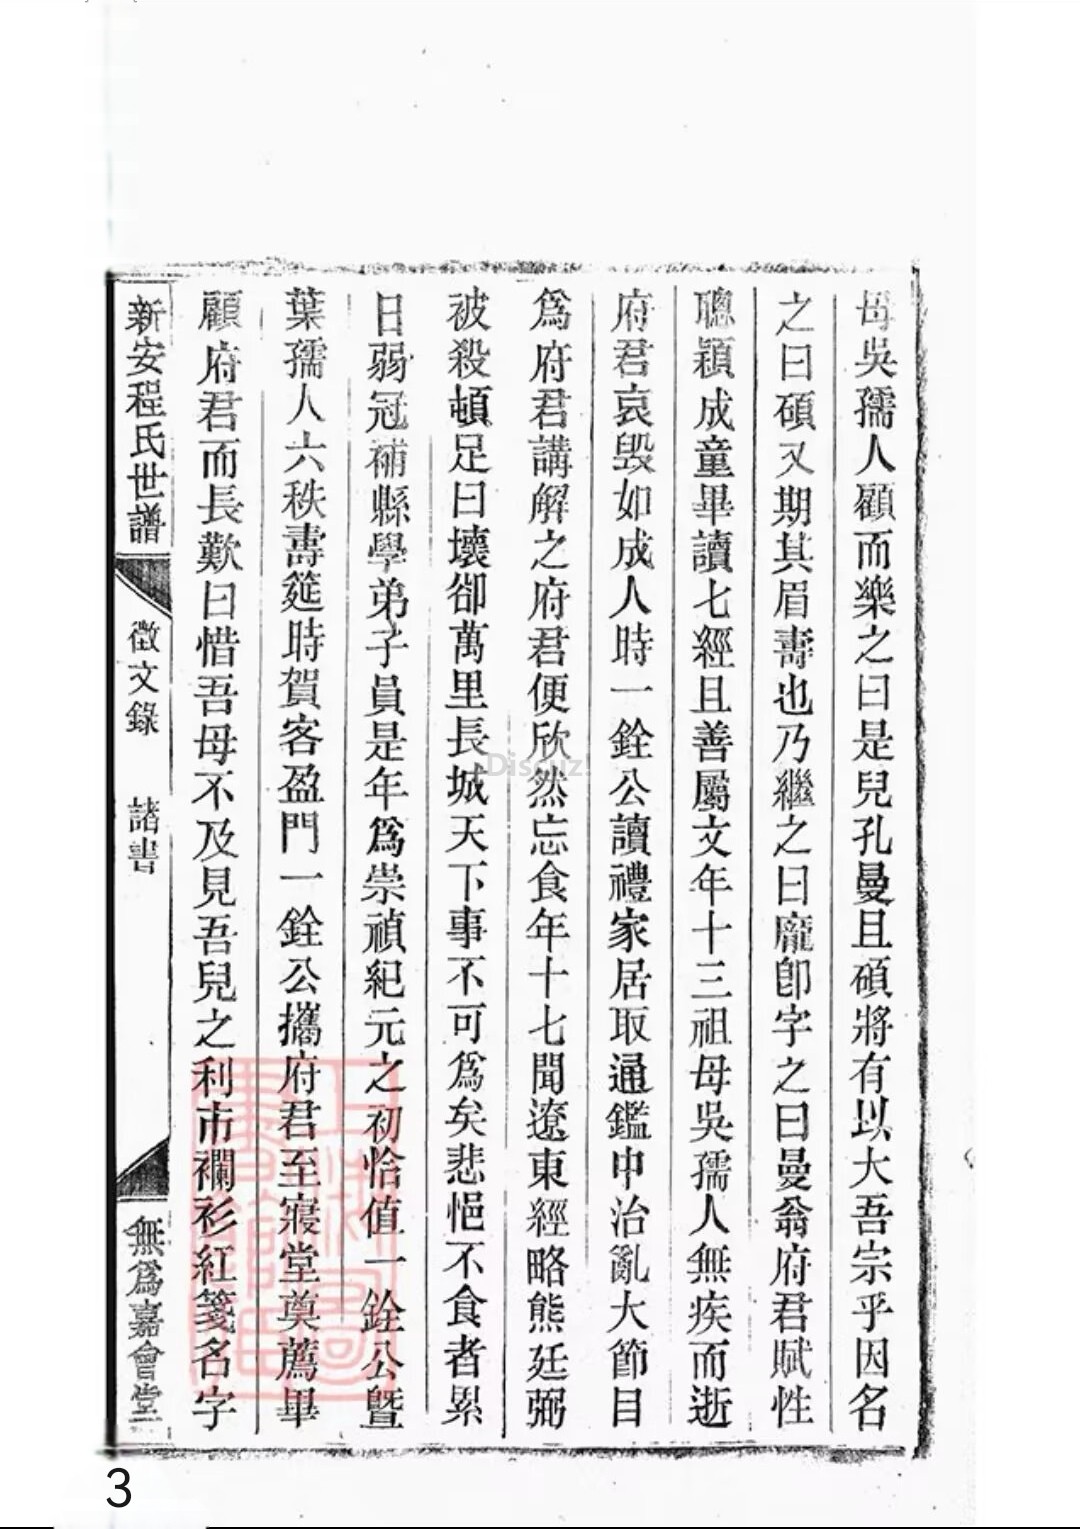 母吳孺人顧而樂之曰是兒孔曼且碩將有以大吾宗乎因名
之曰碩又期其眉壽也乃繼之曰龐卽字之曰曼翁府君賦性
聰穎成童畢讀七經且善屬文年十三祖母吳孺人無疾而逝
府君哀毀如成人時一銓公讀禮家居取通鑑中治亂大節目
爲府君講解之府君便欣然忘食年十七聞遼東經略熊廷弼
被殺頓足曰壞卻萬里長城天下事不可爲矣悲悒不食者累
日弱冠補縣學弟子員是年爲崇禎紀元之初恰值一銓公曁
葉孺人六秩壽筵時賀客盈門一銓公攜府君至寢堂奠薦畢
顧府君而長歎曰惜吾母不及見吾兒之利市襴衫紅箋名字
新安程氏世譜
徵文錄 諸書
無爲嘉會堂
Discuz!
3